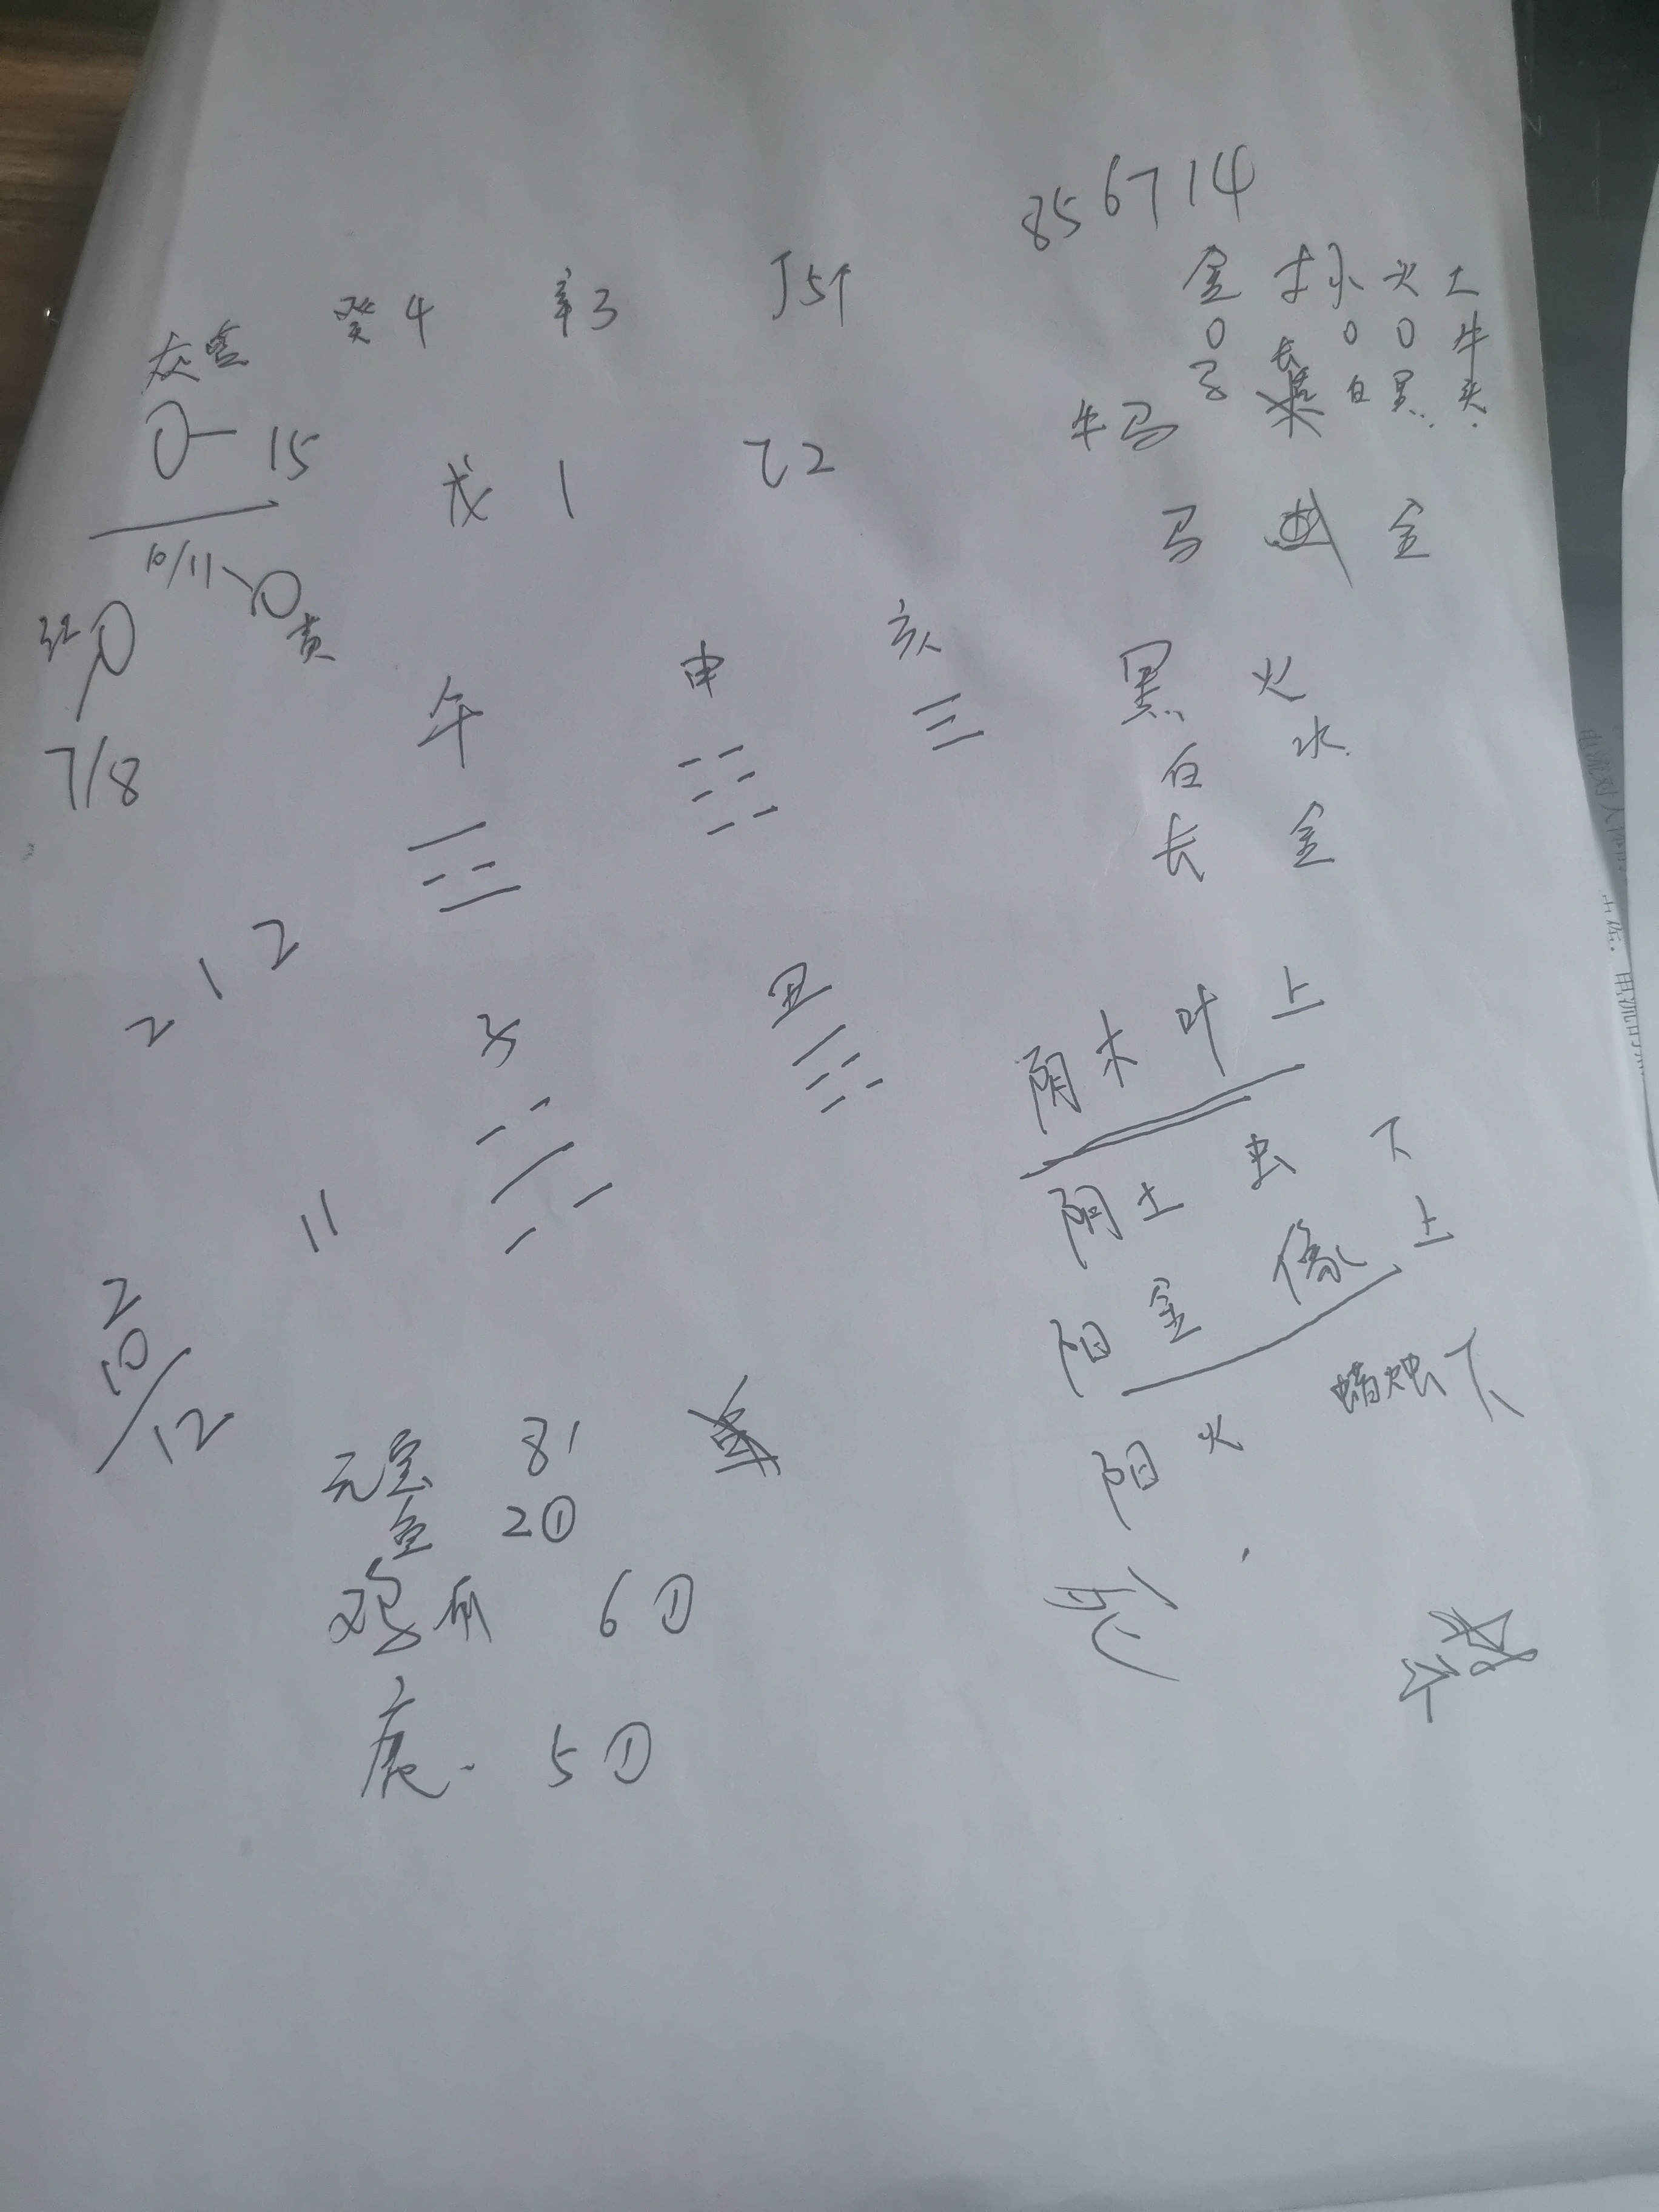 856714
金 木 水 火 土
癸4 辛3 丁5个
灰 金
0 0 0 牛
长
马 白 黑 头
0—15 戊 1 乙2 牛马
10/11 0 黄 马 金
红0 午 申 亥 黑 火
7/8 白 水
长 金
2 1 2 子 丑 阴木 叶 上
阴土 虫 下
11 阳金 像 上
2
10/12
阳火 蜡烛 下
元宝 81
鱼 2①
鸡爪 6①
鹿 5①